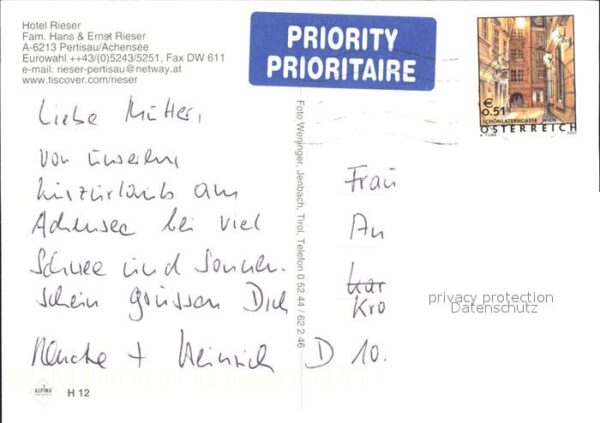 Hotel Rieser
Fam. Hans & Ernst Rieser
A-6213 Pertisau/Achensee
Eurowahl ++43/(0)5243/5251, Fax DW 611
e-mail: rieser-pertisau@netway.at
www.tiscover.com/rieser
PRIORITY
PRIORITAIRE
€
0.51
SCHÖNLATERNGASSE, WIEN
ÖSTERREICH
Liebe Mutter,
von unserem
Kurzurlaub am
Achensee bei viel
Schnee und Sonnen-
schein grüssen Dich
+ Heinrich
Foto Weninger, Jenbach, Tirol, Telefon 0 52 44 / 62 2 46
Frau
An
Kar
Kro
D 10.
privacy protection
Datenschutz
ALPINA
H 12